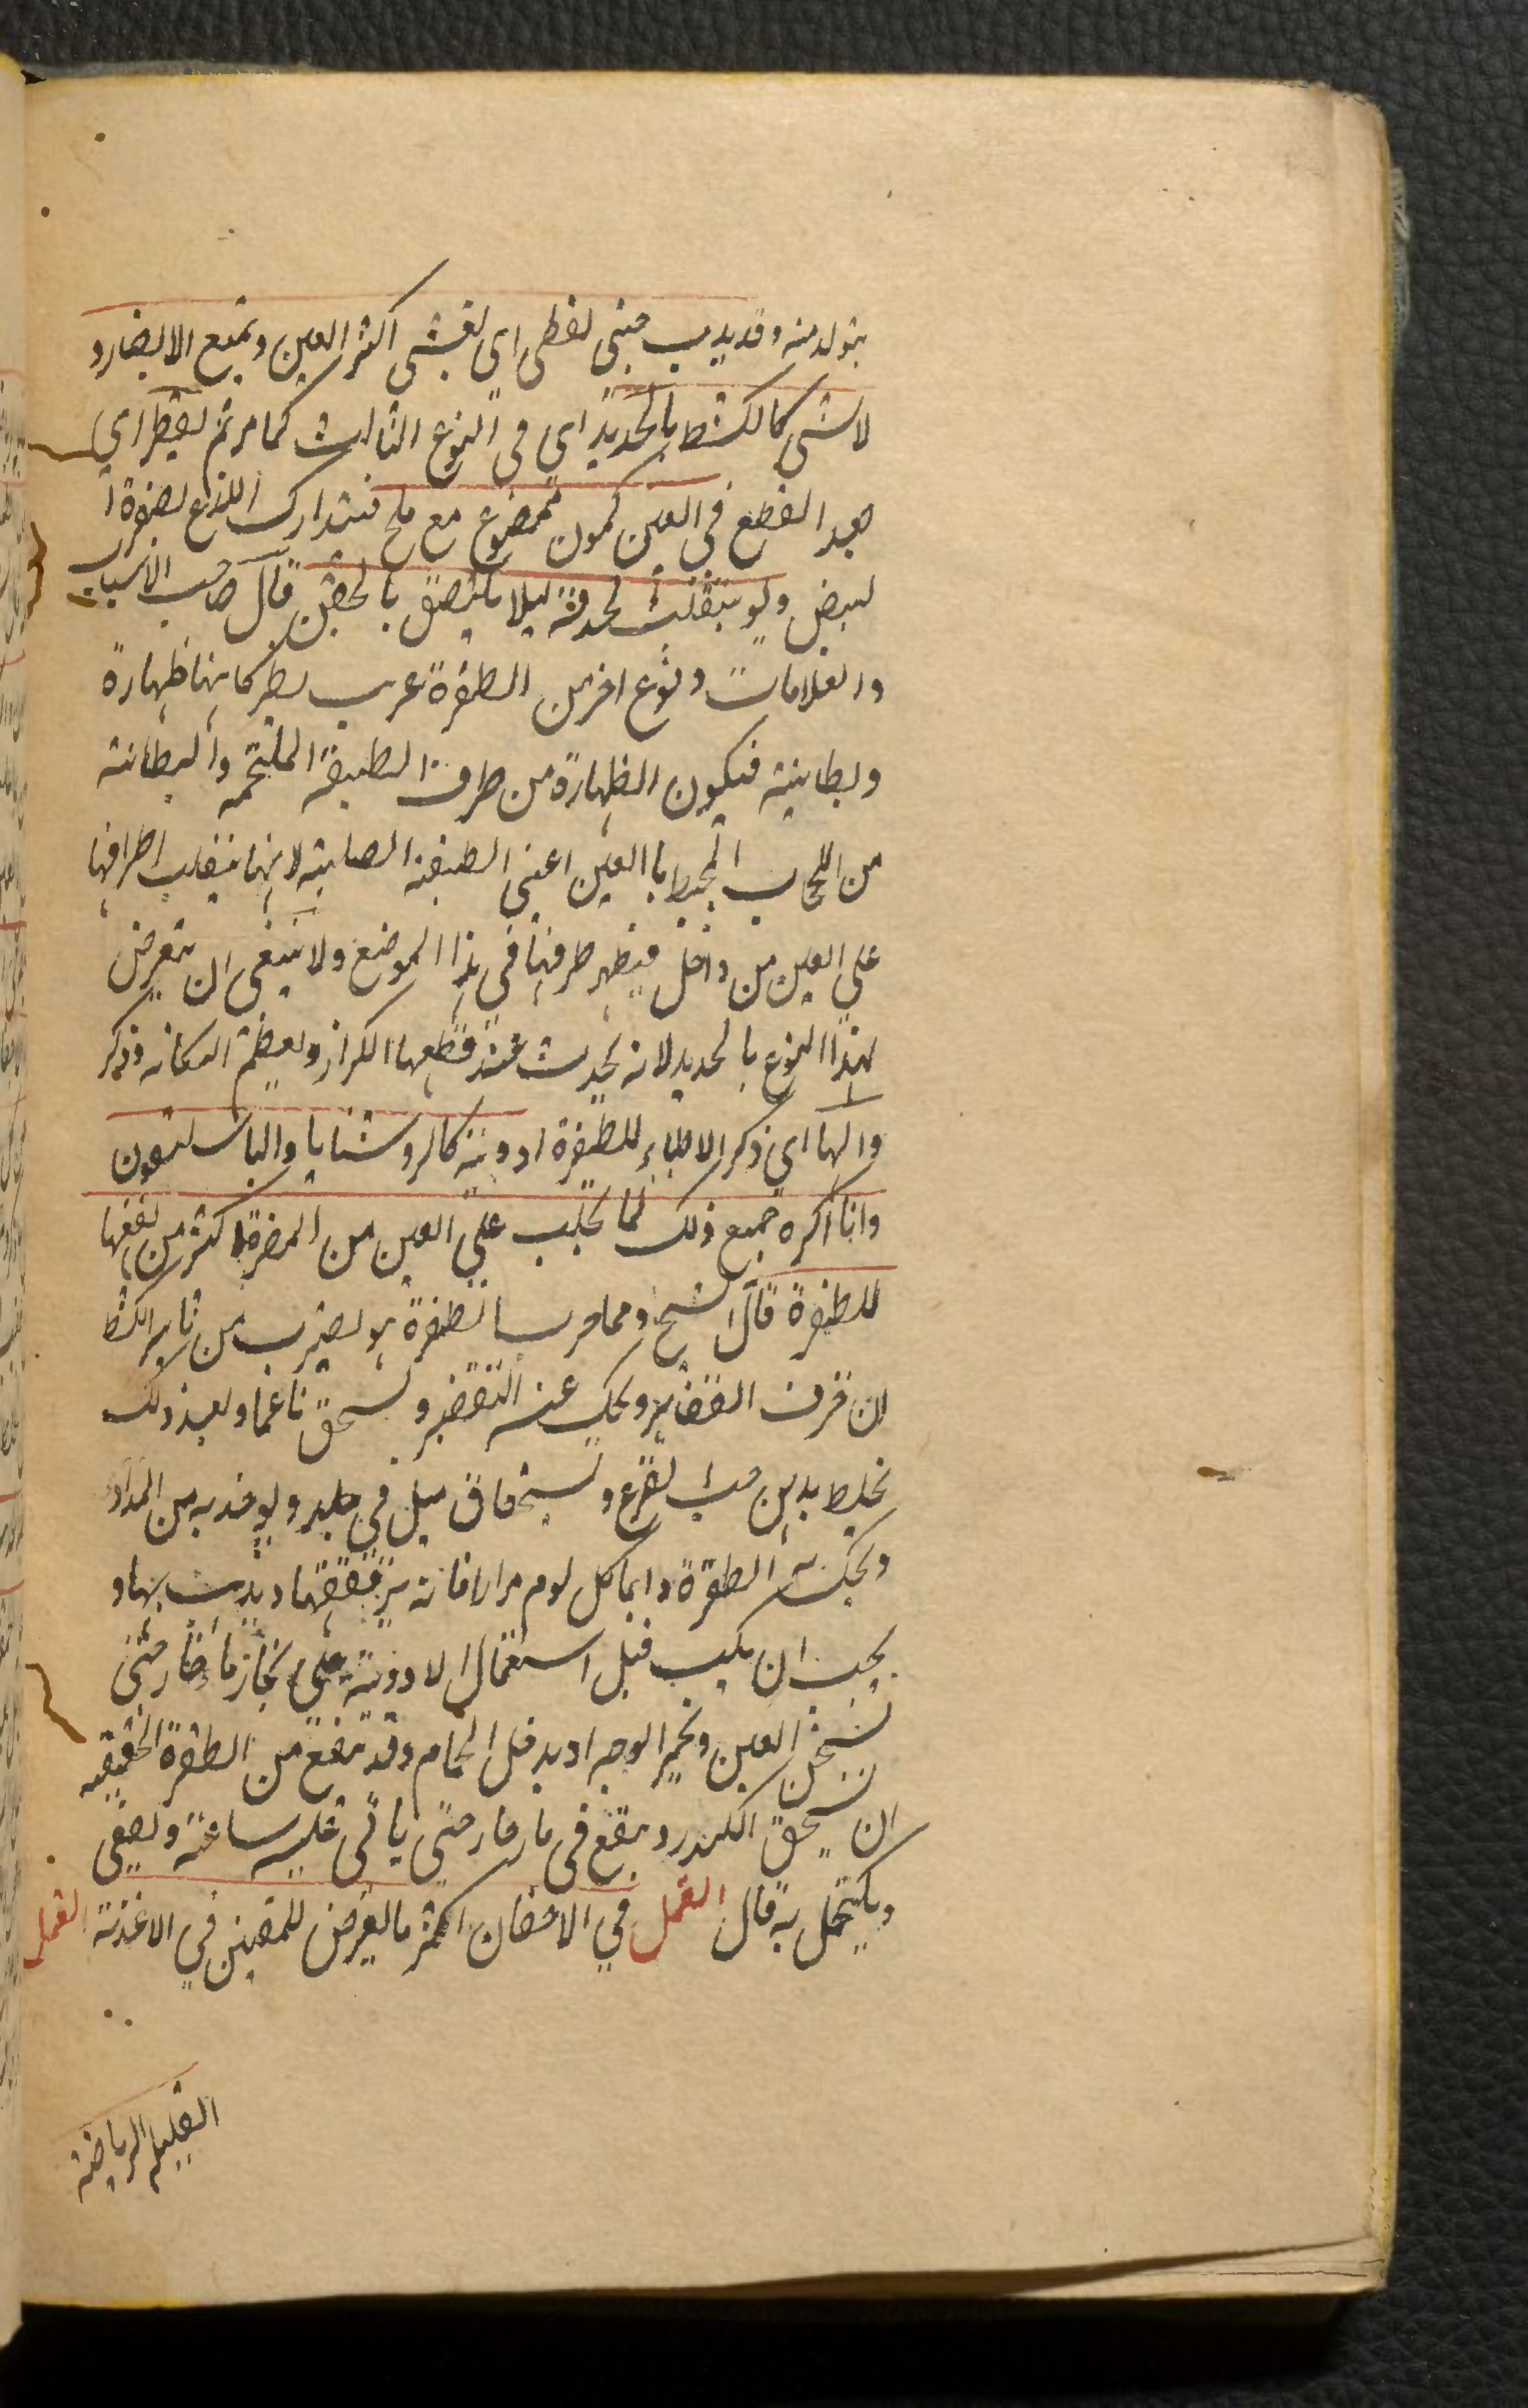 يتولد منه وقد يدب حتى يغطى اى يغشى اكثر العين ويمنع الابصار و
لا شى كالكشط بالحديد اى فى النوع الثالث كما مر ثم يقطر اي
بعد القطع في العين كمون ممضوغ مع ملح فيتدارك اللذع بصفرة ا
لبيض ولو يتقلب الحدقة ليلا يلتصق بالجفن قال صاحب الاسباب
والعلامات ونوع اخر من الظفرة عرب كانها ظهارة
وبطانية فيكون الظهارة من طرف الطبقة الملتحمه والبطانته
من الحجاب المحيط با العين اعنى الطبقة الصلبية لانها ينقلب اطرافها
على العين من داخل فيظهر طرفها في هذا الموضع ولا ينبغى ان يتعرض
لهذا النوع بالحديد لانه يحدث عند قطعها الكزاز ويعظم النكاية وذكر
والها اي ذكر الاطباء للظفرة ادوية كالروشنايا والباسليقون
وانا اكره جميع ذلك لما يجلب على العين من المضرة اكثر من نفعها
للظفرة قال الشيخ ومما جرب للظفرة بل لضرب من تاثير الكشط
ان خزف الغضاير ويحك عنه التقضير ويسحق ناعما وبعد ذلك
يخلط بدهن حب القرع ويسحقان ميل في جلد ولوخذ به من المداد
ويحك به الظفرة دايما كل يوم مرارا فانه يرققها ويذهب بها و
يجب ان يكب قبل استعمال الادوية على بخار ماء حار حتى
يسخن العين ويحمر الوجه او يدخل الحمام وقد ينفع من الظفرة الخفيفه
ان يسحق الكندر وينقع فى ماء حار حتى ياتى عليه ساعة ويصفى
ويكتحل به قال القمل في الاجفان اكثر ما يعرض للمتفنين في الاغذية القمل
القليل الرياضة